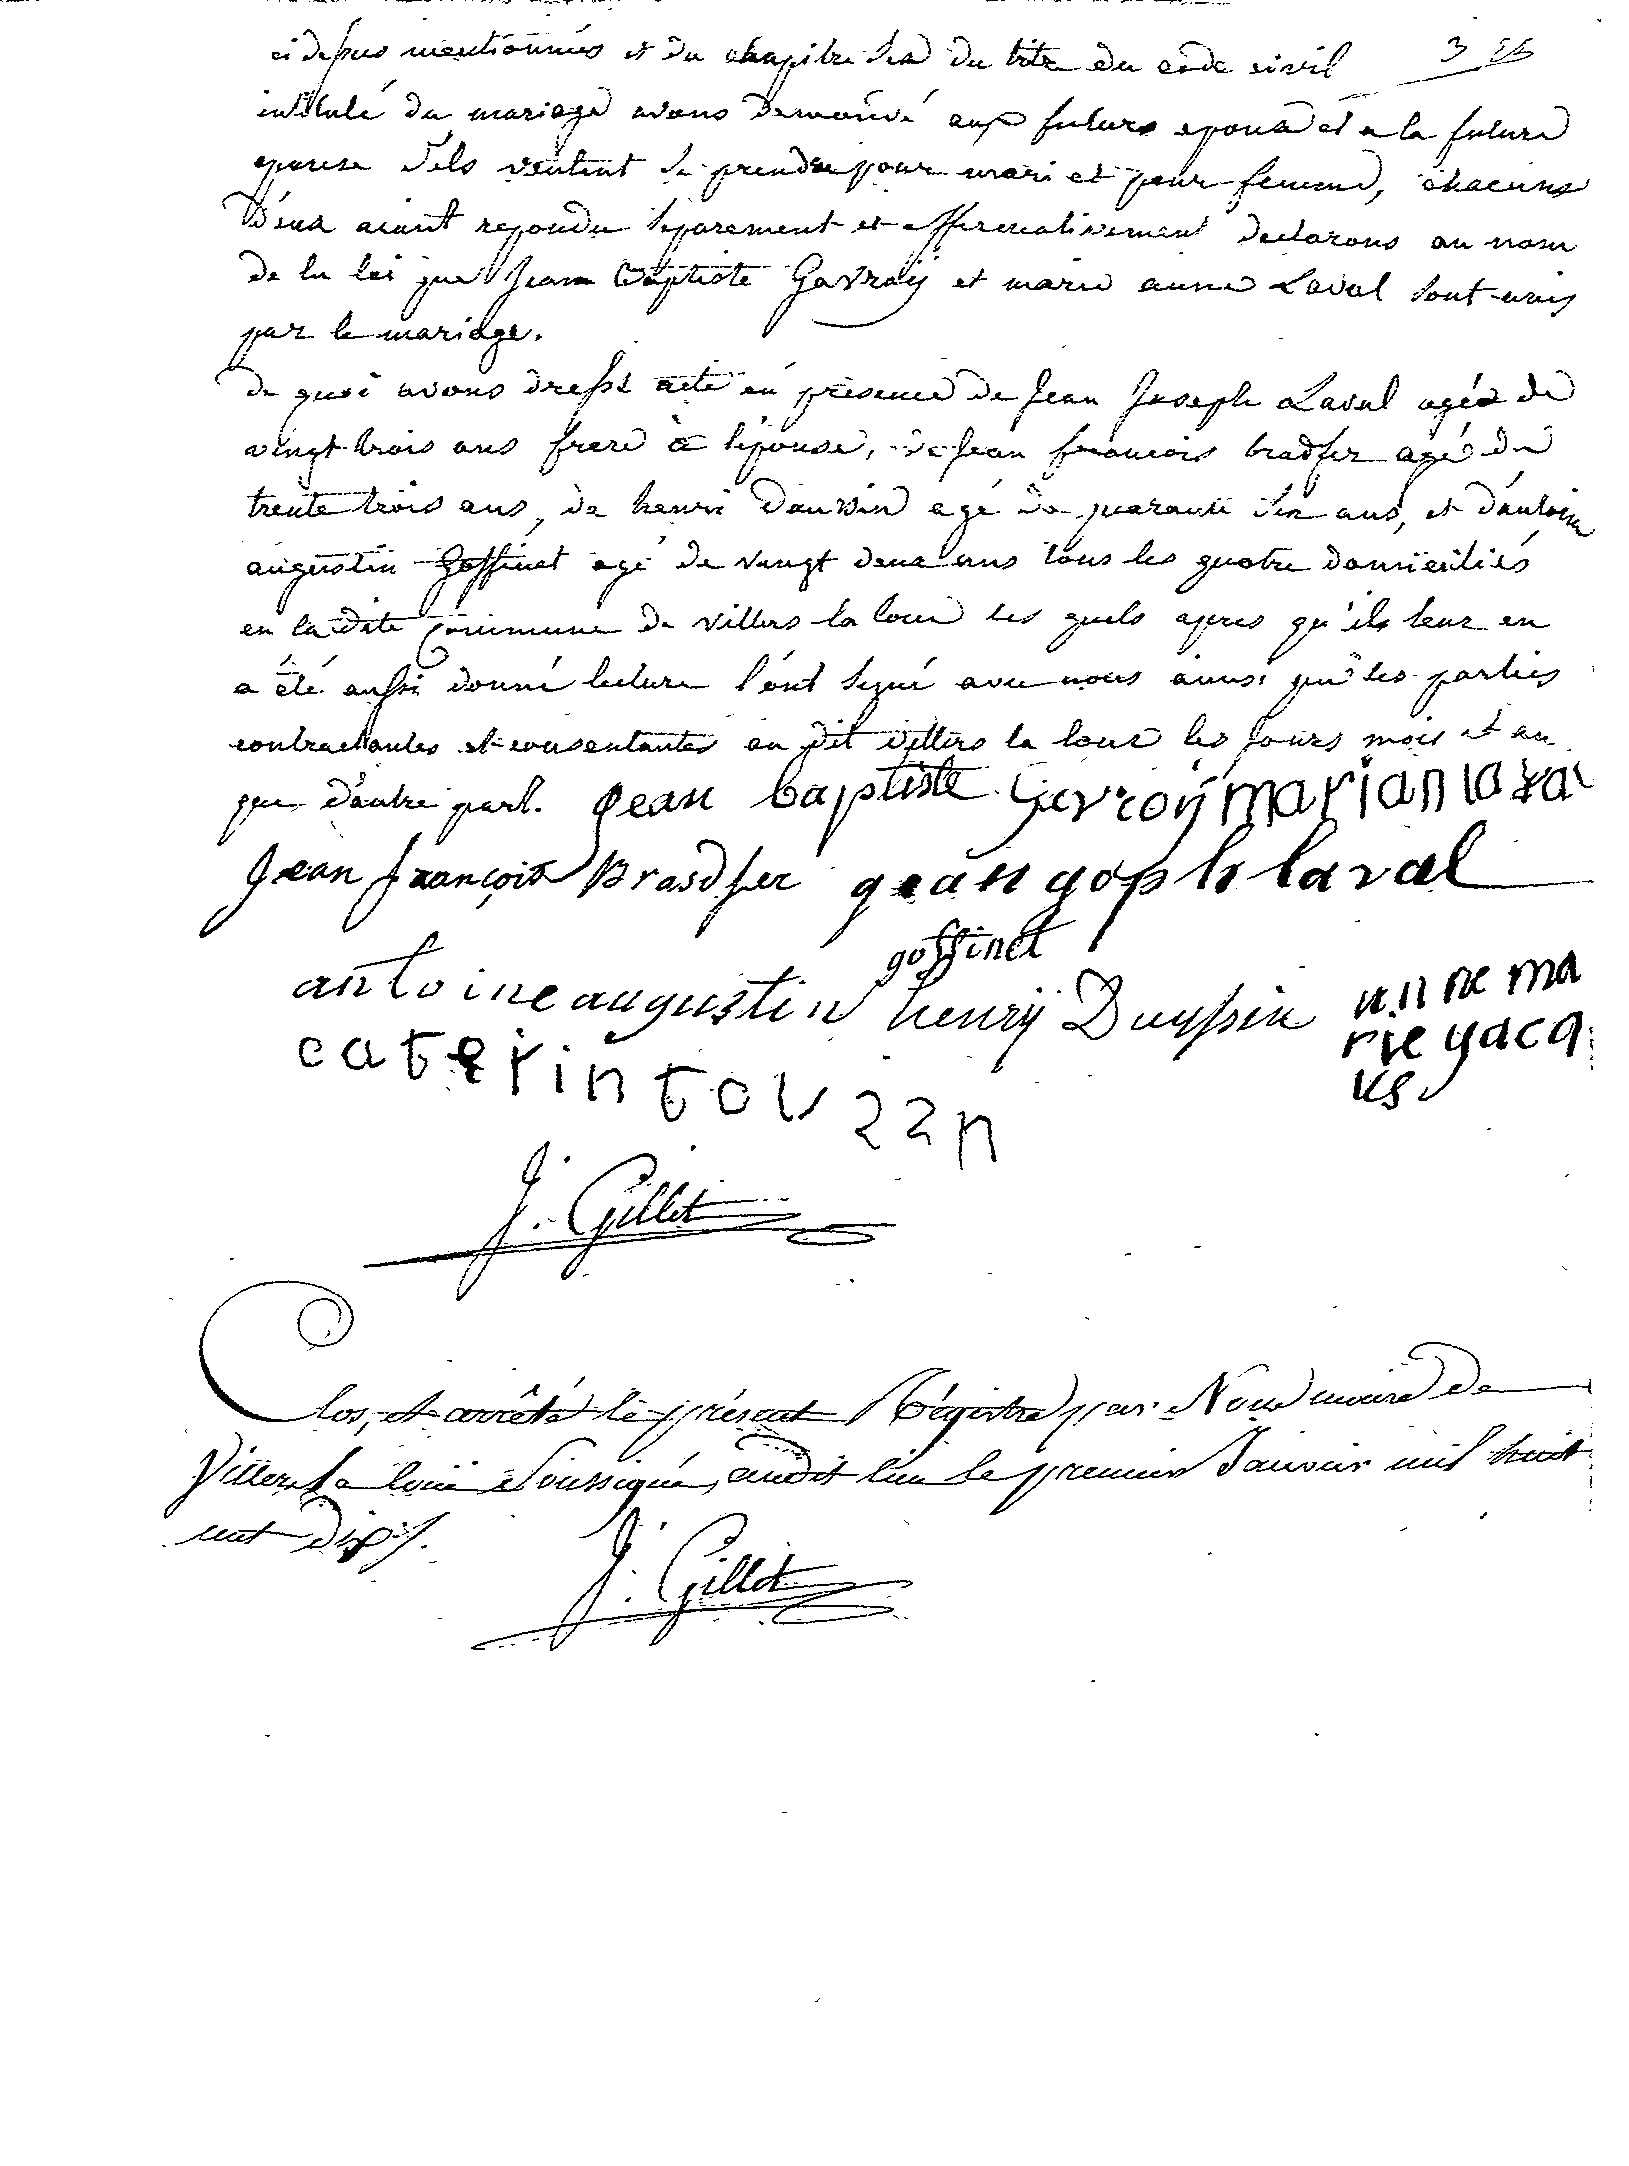 ci dessus mentionnés et du chapitre six du titre du code civil
intitulé du mariage avons demandé aux futurs epoux et a la future
epouse s'ils veulent se prendre pour mari et pour femme, chacuns
d'eux aiant repondu separement et affirmativement declarons au nom
de la loi que Jean Baptiste Gavroÿ et marie anne Laval sont unis
par le mariage.
de quoi avons dressé acte en presence de Jean Joseph Laval agée de
vingt trois ans frere a l'épouse, de Jean francois bradfer agé de
trente trois ans, de henri agé de quarante six ans, et d'antoine
augustin Goffinet agé de vingt deux ans tous les quatre domiciliés
en la dite commune de villers la loue les quels apres qu'ils leur en
a été aussi donné lecture l'ont signé avec nous ainsi que les parties
contractantes et consentantes au dit villers la loue les jours mois et an
que d'autre part. Jean baptiste Gavroÿ marian laval
Jean françois Brasdfer gean goseph laval
goffinet
antoine augustin henrÿ anne ma
rie yacq
us
caterin tou22n
J. Gillet
Clos, et arrêté le présent Régistre par Nous maire de
Villers la louë Soussigné, audit lieu le premier Janvier mil huit
cent dix /.
J. Gillet